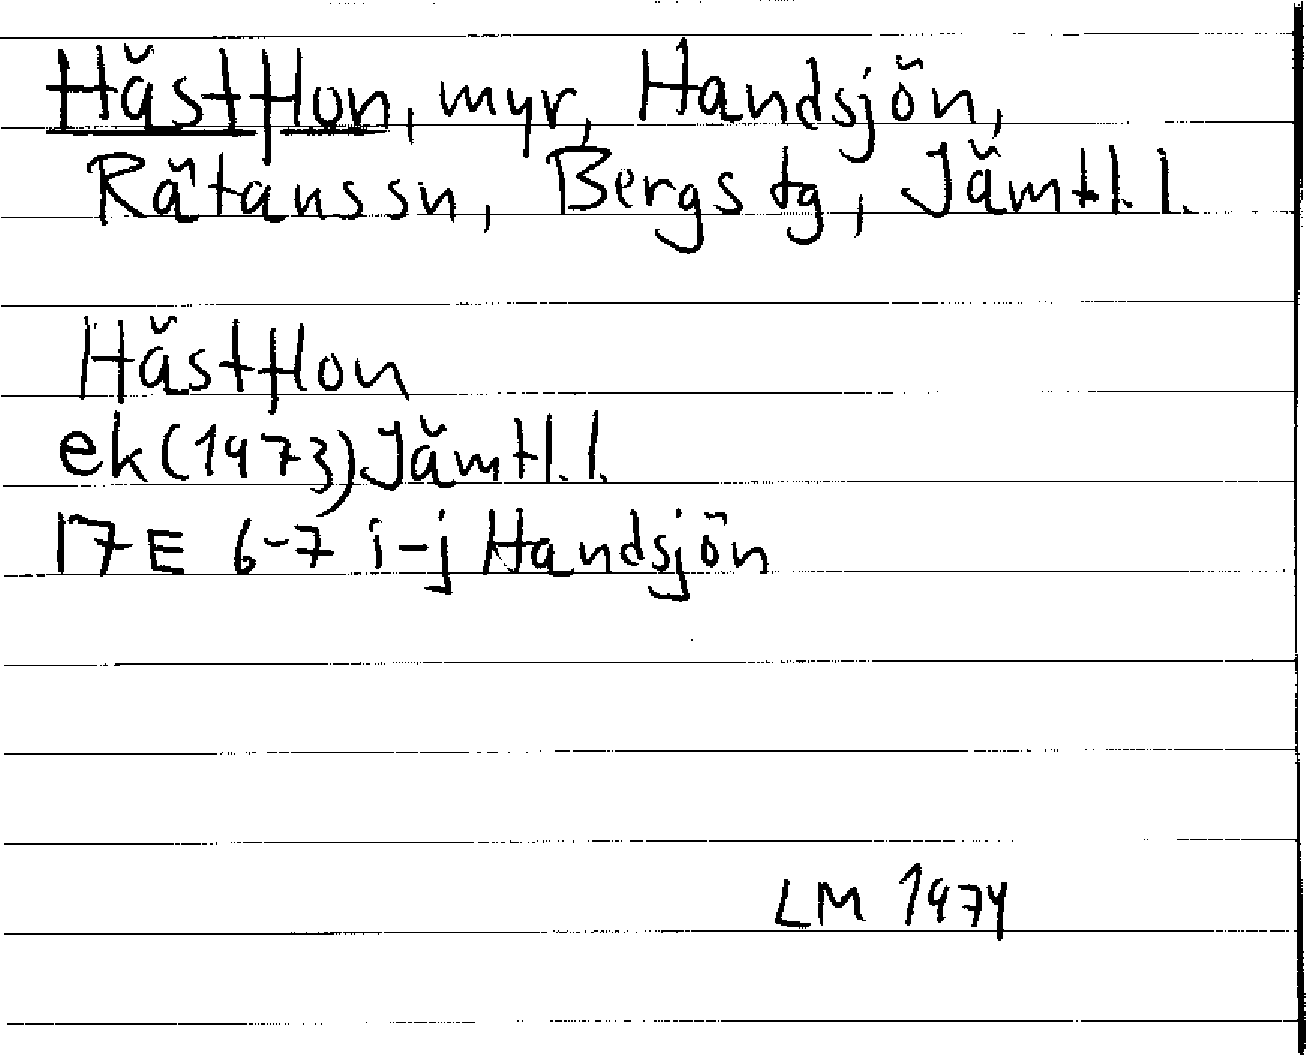 Hästflon, myr, Handsjön,
Rätanssn, Bergs tg, Jämtl. l.
Hästflon
ek (1973) Jämtl. l.
17E 6-7 i-j Handsjön
LM 1974